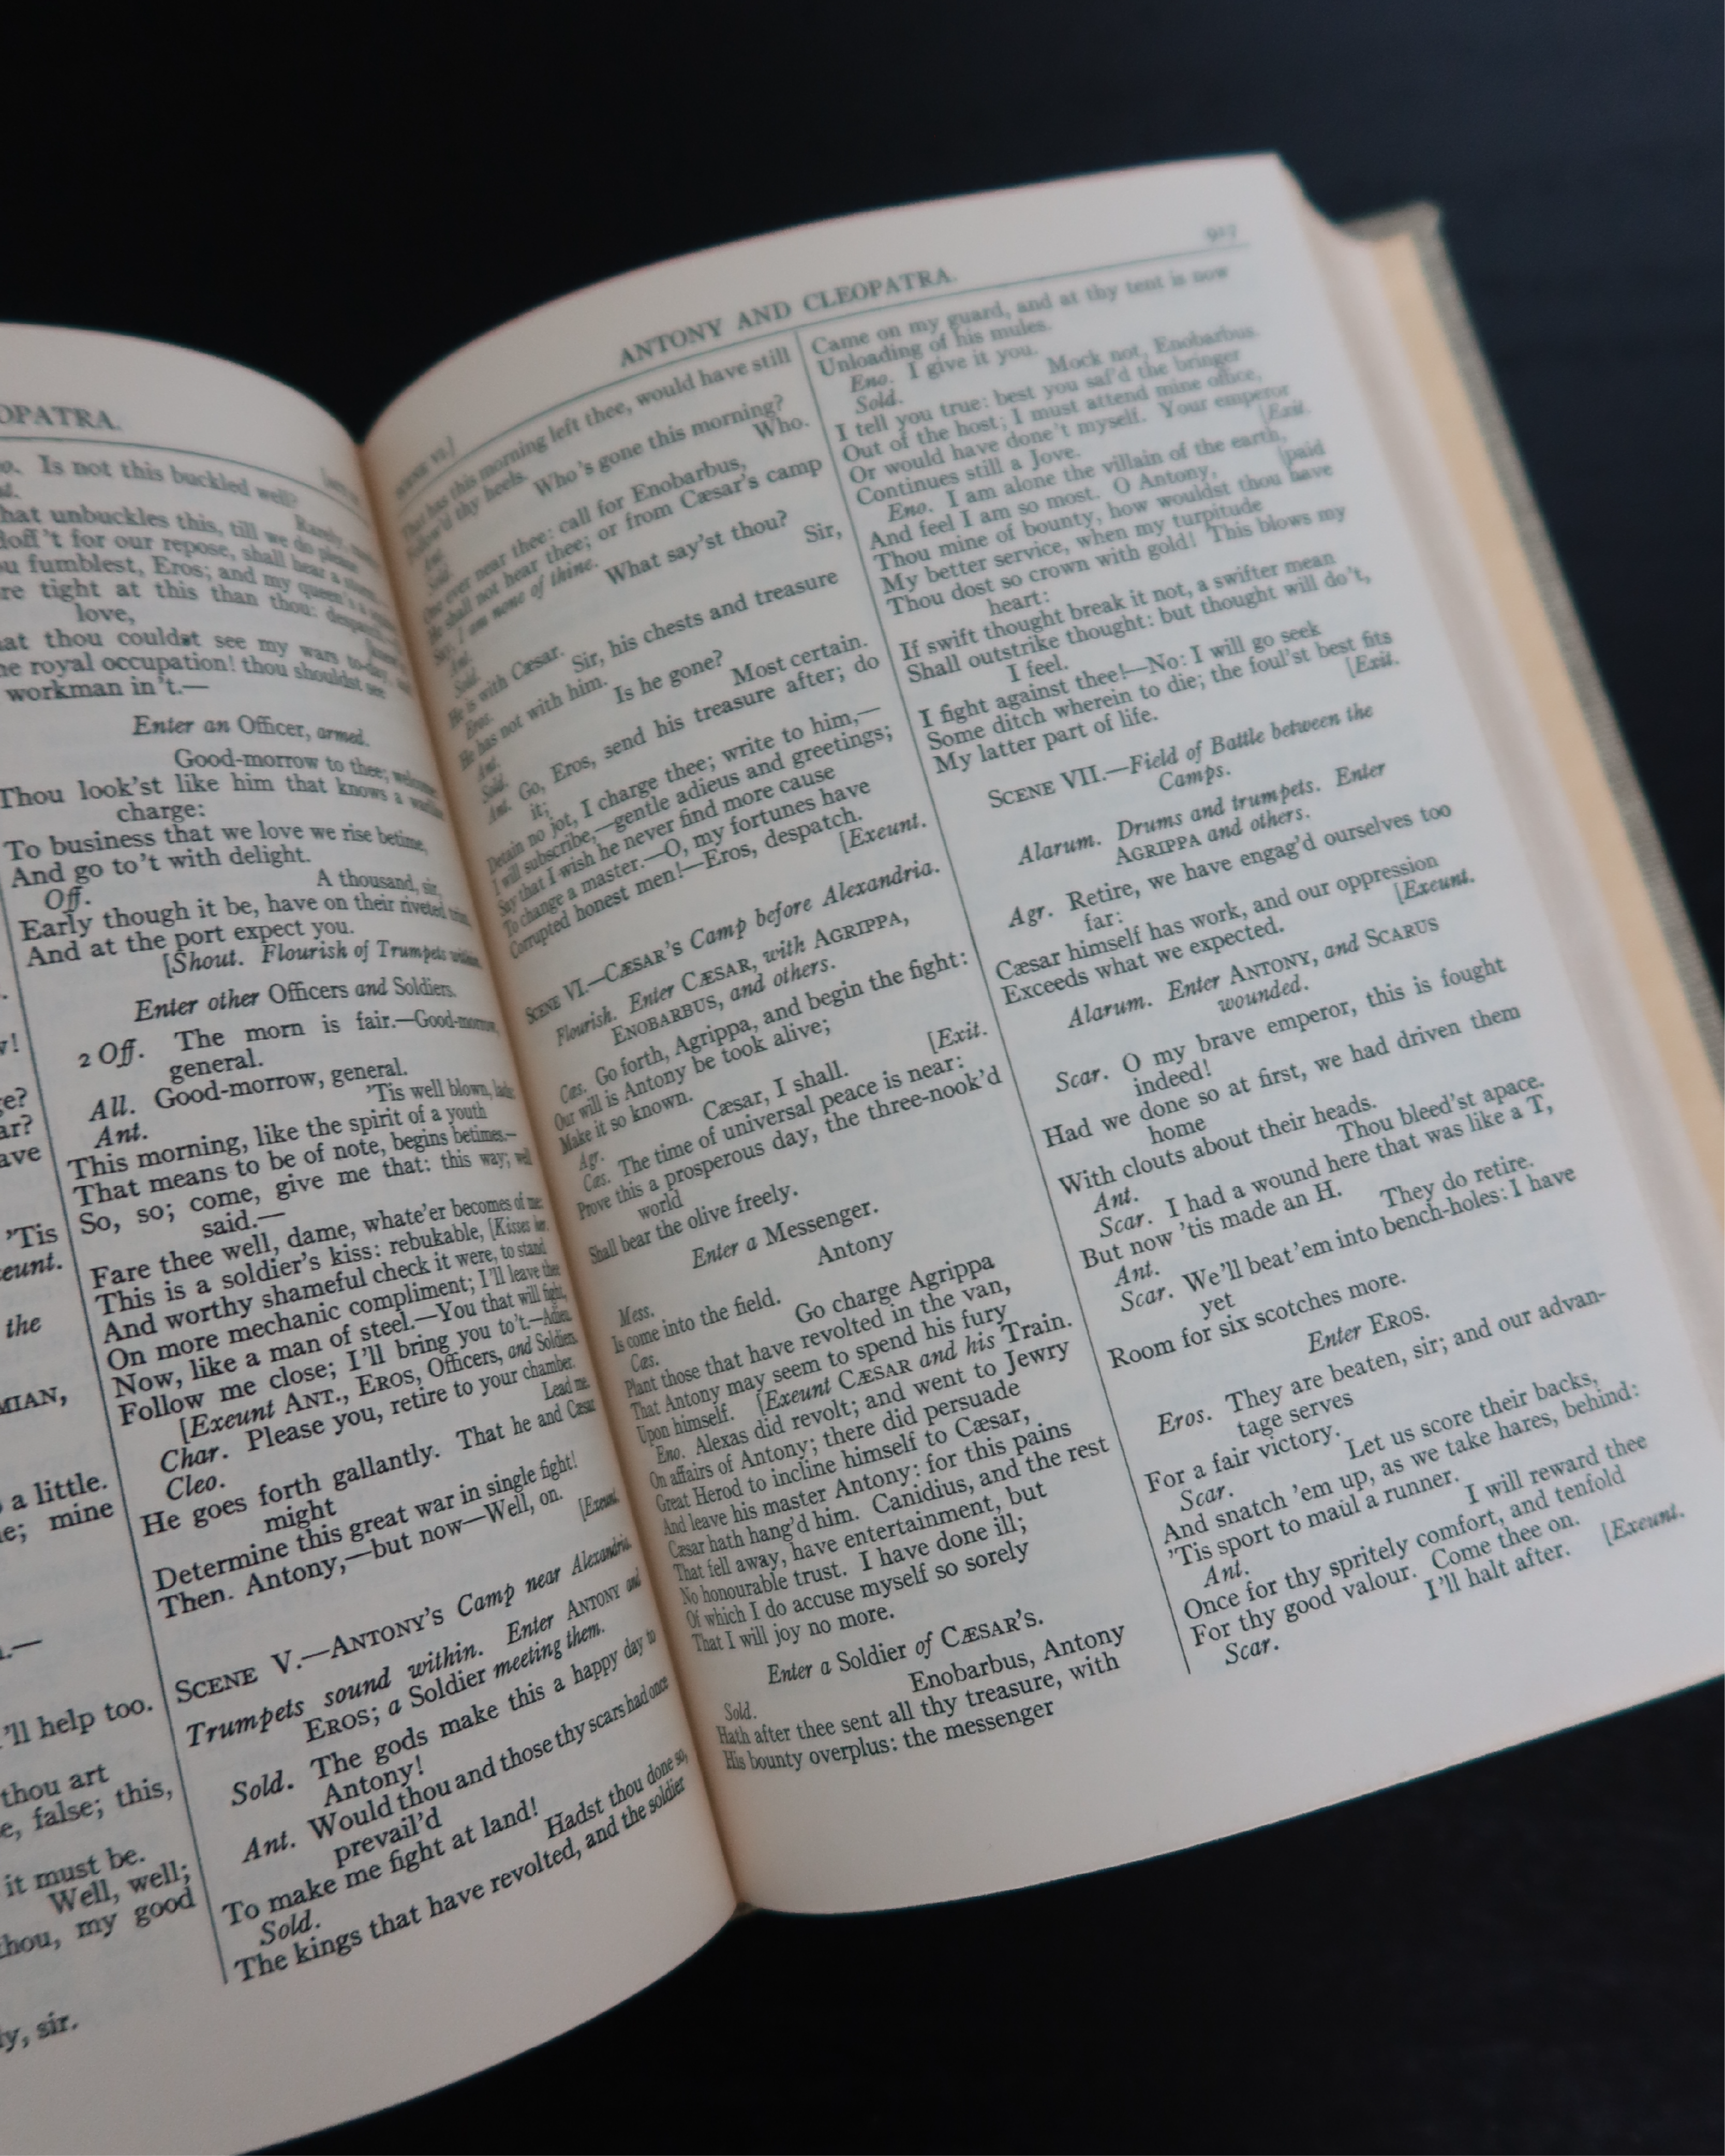 OPATRA.
Is not this buckled well?
Rarely,
hat unbuckles this, till we do please
doff't for our repose, shall hear a
u fumblest, Eros; and my queen's a
re tight at this than thou:
love,
at thou couldst see my wars to-day,
he royal occupation! thou shouldst see
workman in't.—
Enter an Officer, armed.
Good-morrow to thee; welcome
Thou look'st like him that knows a
charge:
To business that we love we rise betime,
And go to't with delight.
Off. A thousand, sir,
Early though it be, have on their riveted trim,
And at the port expect you.
[Shout. Flourish of Trumpets within.
Enter other Officers and Soldiers.
2 Off. The morn is fair.—Good-morrow,
general.
All. Good-morrow, general.
Ant. 'Tis well blown, lads:
This morning, like the spirit of a youth
That means to be of note, begins betimes.—
So, so; come, give me that: this way; well
said.—
Fare thee well, dame, whate'er becomes of me:
This is a soldier's kiss: rebukable, [Kisses her.
And worthy shameful check it were, to stand
On more mechanic compliment; I'll leave thee
Now, like a man of steel.—You that will fight,
Follow me close; I'll bring you to't.—Adieu.
[Exeunt ANT., EROS, Officers, and Soldiers.
Char. Please you, retire to your chamber.
Cleo. Lead me.
He goes forth gallantly. That he and Cæsar
might
Determine this great war in single fight!
Then. Antony,—but now—Well, on. [Exeunt.
SCENE V.—ANTONY'S Camp near Alexandria.
Trumpets sound within. Enter ANTONY and
EROS; a Soldier meeting them.
Sold. The gods make this a happy day to
Antony!
Ant. Would thou and those thy scars had once
prevail'd
To make me fight at land!
Sold. Hadst thou done so,
The kings that have revolted, and the soldier
'Tis
the
MIAN,
a little.
mine
'll help too.
thou art
false; this,
it must be.
Well, well;
thou, my good
sir.
ANTONY AND CLEOPATRA.
917
SCENE VII.]
That has this morning left thee, would have still
Follow'd thy heels.
Ant. Who's gone this morning?
Sold. Who.
One ever near thee: call for Enobarbus,
He shall not hear thee; or from Cæsar's camp
Say, I am none of thine.
Ant. What say'st thou?
Sold. Sir,
He is with Cæsar.
Eros. Sir, his chests and treasure
He has not with him.
Ant. Is he gone?
Sold. Most certain.
Ant. Go, Eros, send his treasure after; do
it;
Detain no jot, I charge thee; write to him,—
I will subscribe,—gentle adieus and greetings;
Say that I wish he never find more cause
To change a master.—O, my fortunes have
Corrupted honest men!—Eros, despatch.
[Exeunt.
SCENE VI.—CÆSAR'S Camp before Alexandria.
Flourish. Enter CÆSAR, with AGRIPPA,
ENOBARBUS, and others.
Cæs. Go forth, Agrippa, and begin the fight:
Our will is Antony be took alive;
Make it so known.
Agr. Cæsar, I shall. [Exit.
Cæs. The time of universal peace is near:
Prove this a prosperous day, the three-nook'd
world
Shall bear the olive freely.
Enter a Messenger.
Mess. Antony
Is come into the field.
Cæs. Go charge Agrippa
Plant those that have revolted in the van,
That Antony may seem to spend his fury
Upon himself. [Exeunt CÆSAR and his Train.
Eno. Alexas did revolt; and went to Jewry
On affairs of Antony; there did persuade
Great Herod to incline himself to Cæsar,
And leave his master Antony: for this pains
Cæsar hath hang'd him. Canidius, and the rest
That fell away, have entertainment, but
No honourable trust. I have done ill;
Of which I do accuse myself so sorely
That I will joy no more.
Enter a Soldier of CÆSAR'S.
Sold. Enobarbus, Antony
Hath after thee sent all thy treasure, with
His bounty overplus: the messenger
Came on my guard, and at thy tent is now
Unloading of his mules.
Eno. I give it you.
Sold. Mock not, Enobarbus.
I tell you true: best you saf'd the bringer
Out of the host; I must attend mine office,
Or would have done't myself. Your emperor
Continues still a Jove. [Exit.
Eno. I am alone the villain of the earth,
And feel I am so most. O Antony, [paid
Thou mine of bounty, how wouldst thou have
My better service, when my turpitude
Thou dost so crown with gold! This blows my
heart:
If swift thought break it not, a swifter mean
Shall outstrike thought: but thought will do't,
I feel.
I fight against thee!—No: I will go seek
Some ditch wherein to die; the foul'st best fits
My latter part of life. [Exit.
SCENE VII.—Field of Battle between the
Camps.
Alarum. Drums and trumpets. Enter
AGRIPPA and others.
Agr. Retire, we have engag'd ourselves too
far:
Cæsar himself has work, and our oppression
Exceeds what we expected. [Exeunt.
Alarum. Enter ANTONY, and SCARUS
wounded.
Scar. O my brave emperor, this is fought
indeed!
Had we done so at first, we had driven them
home
With clouts about their heads.
Ant. Thou bleed'st apace.
Scar. I had a wound here that was like a T,
But now 'tis made an H.
Ant. They do retire.
Scar. We'll beat 'em into bench-holes: I have
yet
Room for six scotches more.
Enter EROS.
Eros. They are beaten, sir; and our advan-
tage serves
For a fair victory.
Scar. Let us score their backs,
And snatch 'em up, as we take hares, behind:
'Tis sport to maul a runner.
Ant. I will reward thee
Once for thy spritely comfort, and tenfold
For thy good valour. Come thee on.
Scar. I'll halt after. [Exeunt.